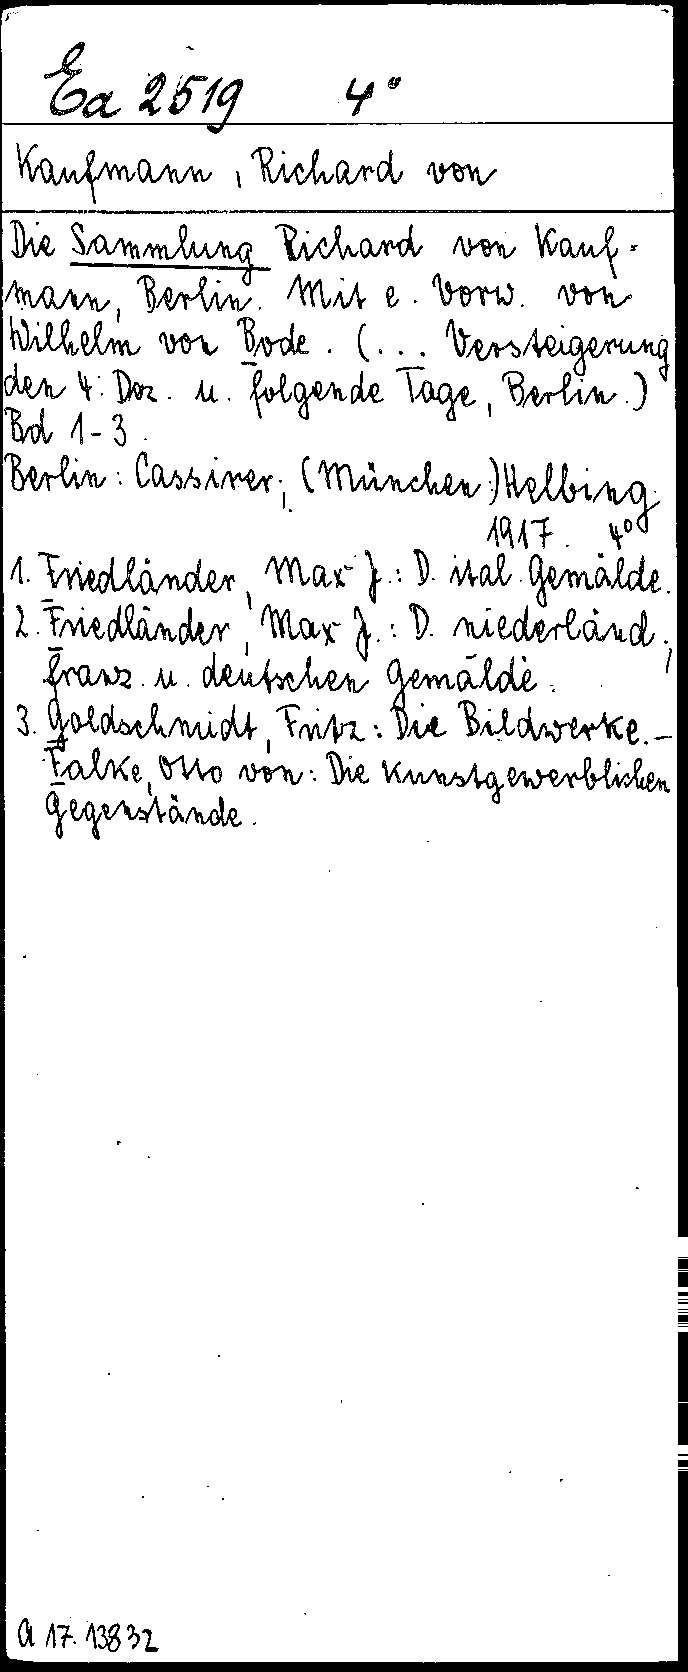 Ea 2519 4°
Kaufmann, Richard von
Die Sammlung Richard von Kauf-
mann, Berlin. Mit e. Vorw. von
Wilhelm von Bode. (... Versteigerung
den 4. Dez. u. folgende Tage, Berlin.)
Bd 1-3.
Berlin: Cassirer; (München:) Helbing
1917. 4°
1. Friedländer, Max J.: D. ital. Gemälde.
2. Friedländer, Max J.: D. niederländ.,
franz. u. deutschen Gemälde.
3. Goldschmidt, Fritz: Die Bildwerke. –
Falke, Otto von: Die Kunstgewerblichen
Gegenstände.
A 17. 13832